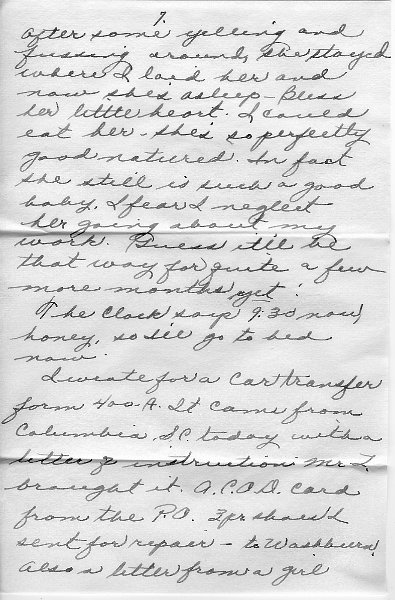 7.
after some yelling and
fussing around, she stayed
where I laid her and
now she's asleep - Bless
her little heart. I could
eat her - she's so perfectly
good natured. In fact
she still is such a good
baby, I fear I neglect
her going about my
work. Guess it'll be
that way for quite a few
more months yet!
The clock says 9:30 now,
honey, so I'll go to bed
now.
I wrote for a car transfer
form 400-A. It came from
Columbia, S.C. today with a
letter of instruction. Mr. T.
brought it. A C.O.D. card
from the P.O. 3 pr. shoes I
sent for repair - to Washburn.
Also a letter from a girl